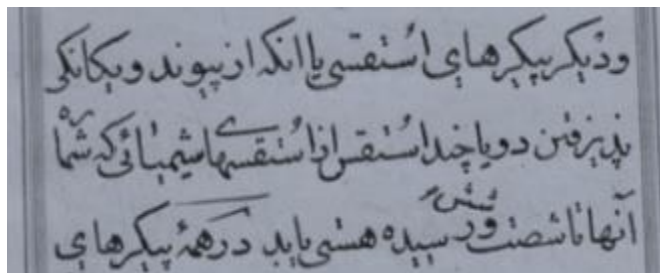 ودیکر پیکرهای استقسی یا انکه از پیوند ویکانکی
پذیرفتن دو یا چند استقس از استقسهای شیمیائی که شماره
آنها تا شصت وشش رسیده هستی یابد در همهٔ پیکرهای